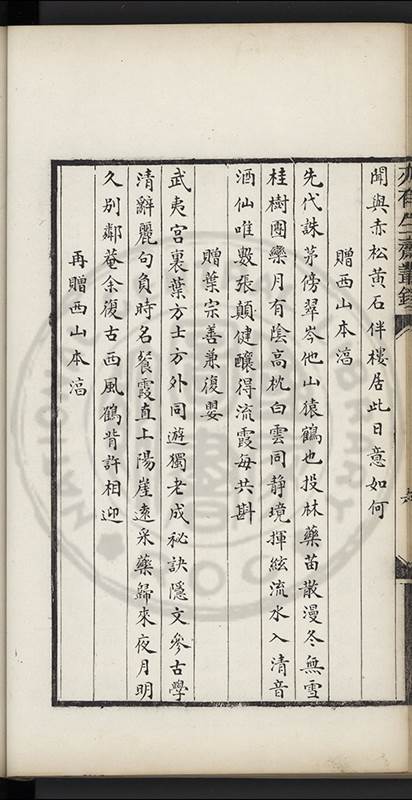 聞與赤松黃石伴樓居此日意如何
贈西山本滔
先代誅茅傍翠岑他山猿鶴也投林藥苗散漫冬無雪
桂樹團欒月有陰高枕白雲同静境揮絃流水入清音
酒仙唯數張顛健釀得流霞每共斟
贈葉宗善兼復嬰
武夷宮裏葉方士方外同遊獨老成秘訣隱文參古學
清辭麗句負時名餐霞直上陽崖遠采藥歸來夜月明
久別鄰菴余復古西風鶴背許相迎
再贈西山本滔